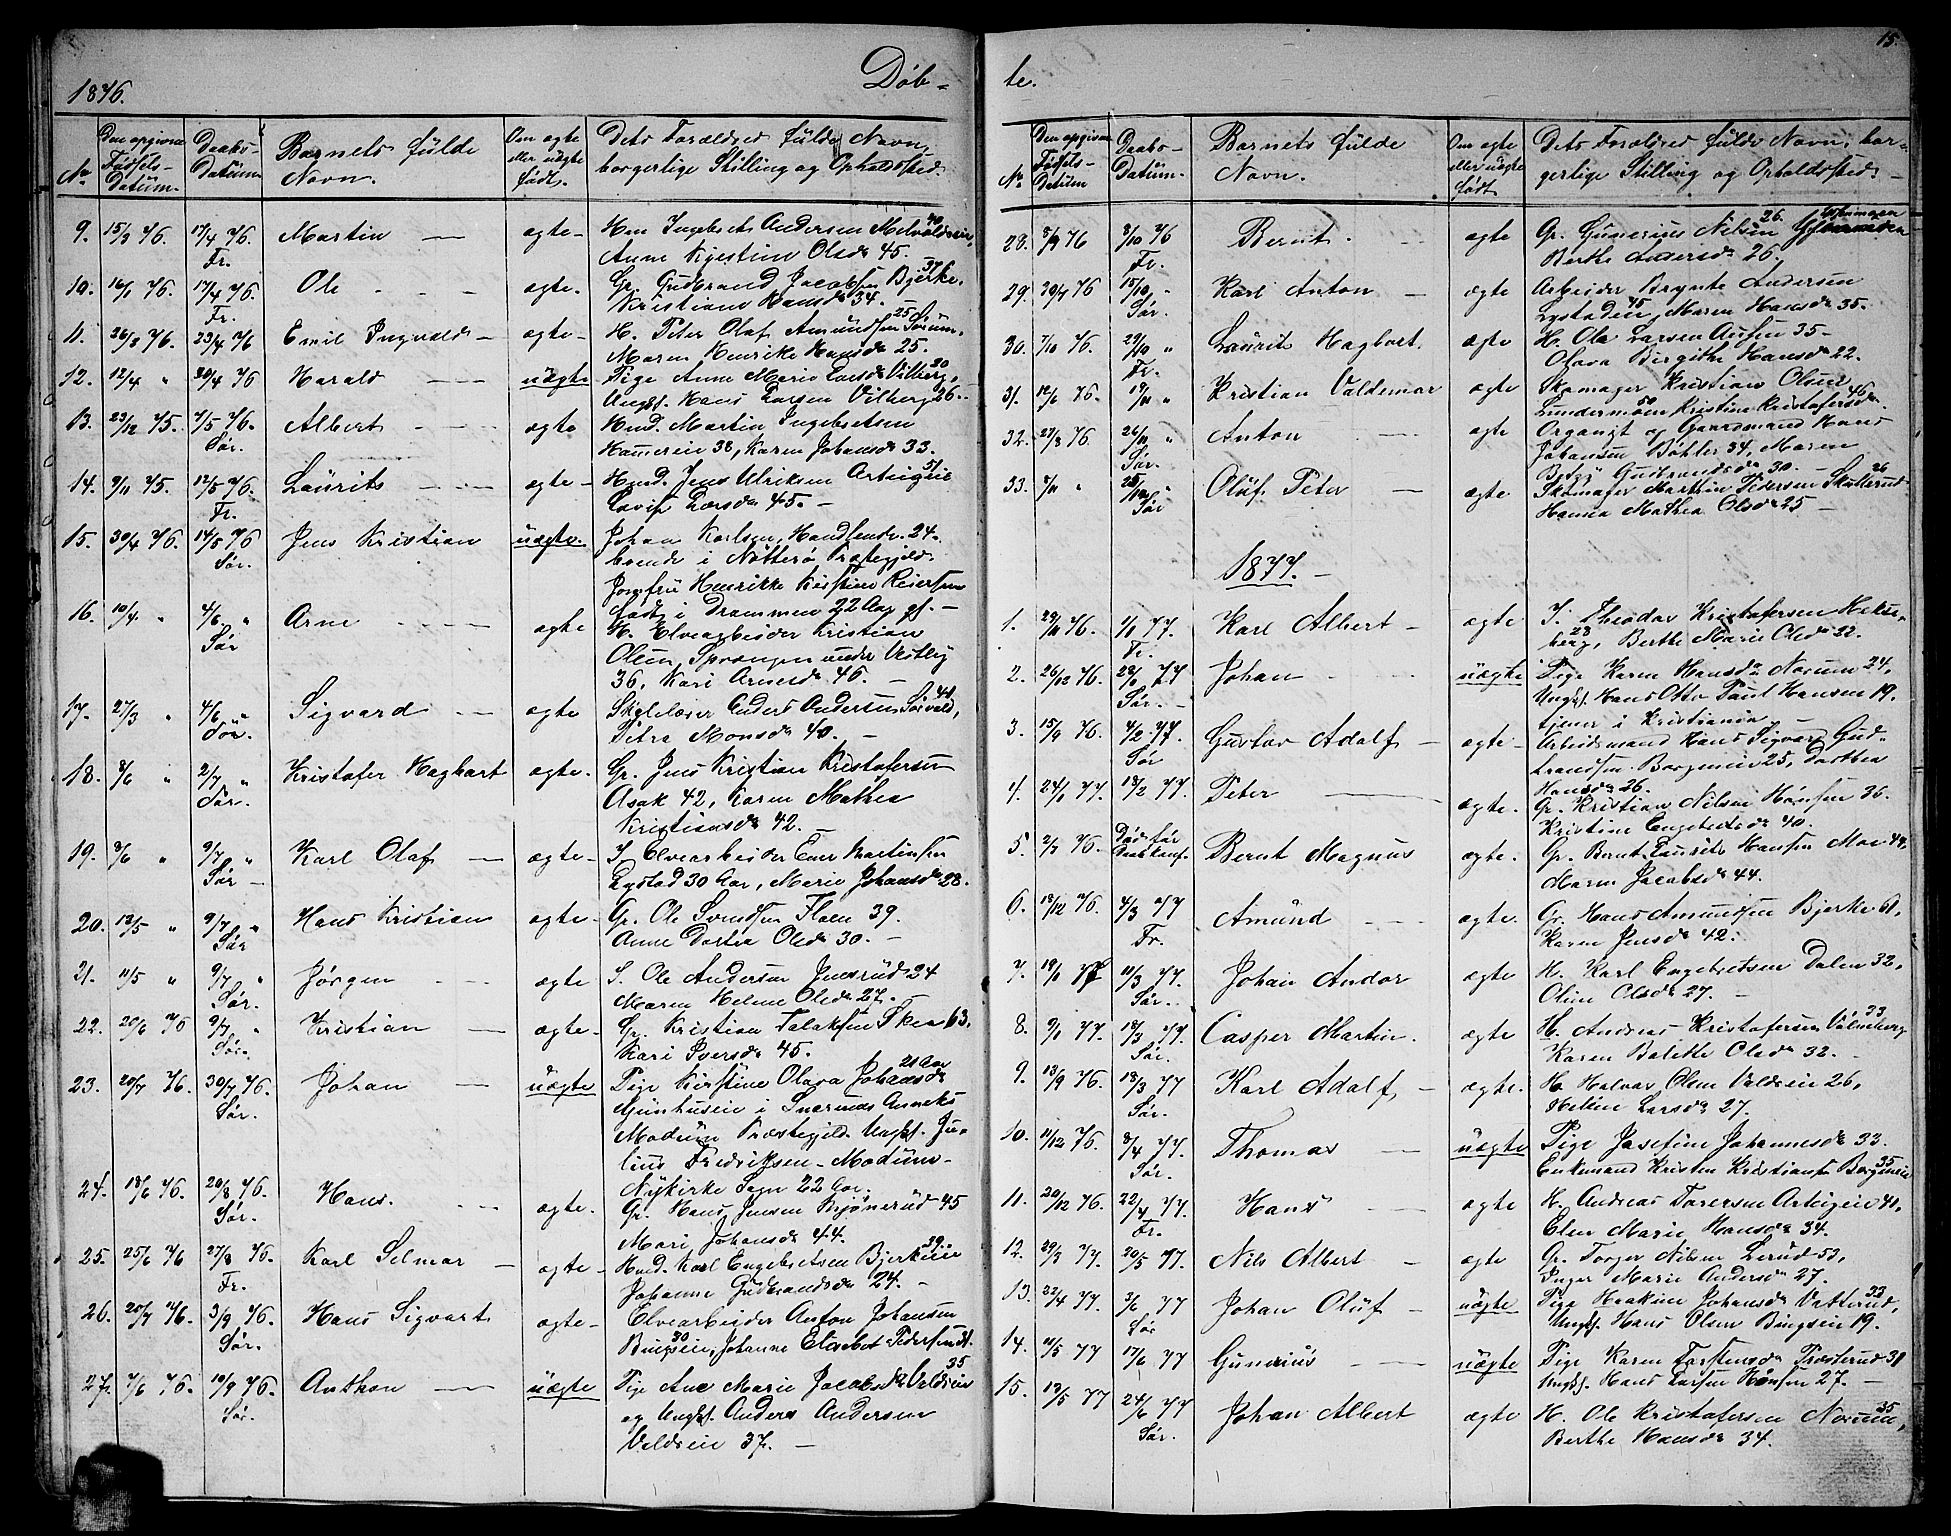 15.
1876.
Døb-
te.
No
Den opgivne Fødsels-Datum.
Daabs-Datum.
Barnets fulde Navn.
Om ægte eller uægte født.
Dets Forældres fulde Navn, borgerlige Stilling og Opholdssted.
9. 15/3 76. 17/4 76. Fr. Martin ægte-
Anne Kjestine Olsdr 45.
10. 16/1 76. 17/4 76. Fr. Ole ægte. Gr. Gudbrand Jacobsen Bjerke 37.
Kristiane Hansdr 34.
11. 26/3 76. 23/4 76 Emil Ingvald ægte- H. Peter Olaf Amundsen Sørum 25
Maren Henrikke Hansdr 25.
12. 12/4 " 30/4 76 Harald uægte Pige Anne Marie Larsdr Vilberg 30
Ungk. Hans Larsen Vilberg 26.
13. 23/12 75. 7/5 76. Sør. Albert ægte Hmd. Martin Ingebretsen
Hauereie 38, Karen Johansdr 33.
14. 9/11 75. 12/5 76. Fr. Laurits ægte- Hmd. Jens Ulriksen
Larsdr 45.
15. 30/4 76. 14/5 76 Sør. Jens Kristian uægte. Johan Karlsen, Handlende 24.
boende i Nøtterø Præstegjeld.
Jomfru Henrikke Kristine Reiersen
født i Drammen 22 Aar gl.
16. 10/4 " 4/6 " Sør Arne ægte H. Elvearbeider Kristian
Olsen, Sprængen under Vestby
36, Kari Arnesdr 46.
17. 27/3 " 4/6 " Sør. Sigvard ægte Skolelærer Anders Andersen Sørvald, 41
Petra Monsdr 40.
18. 8/6 " 2/7 " Sør. Kristofer Haghart ægte. Gr. Jens Kristian Kristofersen
Asak 42, Karen Mathea
Kristiansdr 42.
19. 8/6 " 9/7 " Sør Karl Olaf ægte- I. Elvearbeider Martinsen
Lystad 30 Aar, Marie Johansdr 28.
20. 13/5 " 9/7 " Sør Hans Kristian ægte. Gr. Ole Svendsen Floen 39.
Anne Dortea Olsdr 30.
21. 11/5 " 9/7 " Sør. Jørgen ægte I. Ole Andersen Jensrud 24
Maren Helene Olsdr 27.
22. 20/6 76 9/7 " Sør. Kristian ægte. Gr. Kristian Talaksen 63.
Kari Iversdr 45.
23. 20/7 76. 30/7 76. Sør. Johan uægte Pige Kirstine Olava Johansdr 21 Aar
i Snarums Anneks
Modum Præstegjeld. Ungk. Ju-
lius Fredriksen Modum-
Nykirke Sogn 22 Aar.
24. 18/6 76. 20/8 76. Sør. Hans. ægte. Gr. Hans Jensen Mjønerud 45
Mari Johansdr 44.
25. 25/6 76 27/8 76. Fr. Karl Selmar ægte- Hmd. Karl Engebretsen Bjerkeie 39.
Johanne Gudbrandsdr 24.
26. 20/7 76. 3/9 76. Sør. Hans Sigvart ægte- Elvearbeider Anton Johansen
Bingseie 30, Johanne Elisabet Pedersen
27. 7/6 76. 10/9 76. Sør. Anthon uægte Pige Ane Marie Jacobsdr Veldreie 35
og Ungk. Anders Andersen
Veldreie 37.
No
Den opgivne Fødsels-Datum
Daabs-Datum.
Barnets fulde Navn.
Om ægte eller uægte født.
Dets Forældres fulde Navn, bor-
gerlige Stilling og Opholdssted.
28. 8/9 76 8/10 76 Fr. Bernt. ægte Gr. Gunerius Nilsen 26.
Berthe Andersdr 26.
29. 30/7 76 15/10 " Sør. Karl Anton ægte Arbeider Brynte Andersen
Lystadeie 45, Maren Hansdr 35.
30. 7/10 76. 29/10 " Fr. Laurits Hagbart. ægte H. Ole Larsen 35
Olava Birgithe Hansdr 22.
31. 12/6 76. 19/11 " Kristian Valdemar ægte Skomager Kristian Olsen
Lundermoen 50 Kristine Kristofersdr 46.
32. 27/8 76. 26/11 " Sør. Anton ægte Organist og Gaardmand Hans
Johansen Bøhler 34, Maren
Gudbrandsdr 30.
33. 7/11 " 25/12 " Sør Oluf Peter ægte Skomager Martin Pedersen 26
Hansea Mathea Olsdr 25
1877.
1. 29/11 76. 1/1 77. Fr. Karl Albert ægte I. Theodor Kristofersen Hekse-
berg 23, Berthe Marie Olsdr 32.
2. 26/12 76. 28/1 77 Sør. Johan uægte Pige Karen Hansdr Norum 24,
Ungk. Hans Otto Paul Hansen 19.
tjener i Kristiania
3. 15/9 76. 4/2 77. Sør Gustav Adolf ægte- Arbeidsmand Hans Sigvard Gud-
brandsen Borgeneie 25, Dorthea
Hansdr 26.
4. 24/1 77. 18/2 77. Peter ægte. Gr. Kristian Nilsen Hønsen 36.
Kristine Engebretsdr 40.
5. 2/7 76. Død før Daabkonf. Bernt Magnus ægte. Gr. Bernt Laurits Hansen Moe 44,
Maren Jacobsdr 44.
6. 19/12 76. 4/3 77 Fr. Amund ægte. Gr. Hans Amundsen Bjerke 61,
Karen Jensdr 42.
7. 19/1 77 11/3 77. Sør. Johan Andor ægte H. Karl Engebretsen Dalen 32,
Oline Olsdr 27.
8. 9/1 77. 18/3 77. Sør. Casper Martin. ægte H. Andreas Kristofersen 33
Karen Olsdr 32.
9. 13/9 76. 18/3 77 Sør. Karl Adolf ægte. H. Halvor Olsen Veldreie 26,
Helene Larsdr 27.
10. 11/12 76. 8/4 77. Sør. Thomas uægte Pige Josefine Johannesdr 33.
Enkemand Kristen Kristiansen Borgeneie 35
11. 20/12 76. 22/4 77. Fr. Hans ægte H. Andreas Torersen 41,
Elen Marie Hansdr 34.
12. 29/3 77. 20/5 77. Nils Albert ægte Gr. Torger Nilsen Lerud 53,
Inger Marie Andersdr 27.
13. 22/4 77. 3/6 77 Sør Johan Oluf uægte Pige Johansdr Vatterud, 33
Ungk. Hans Olsen Bingseie 19.
14. 11/5 77 17/6 77 Gunerius uægte Pige Karen Torstensdr Trøsterud 31
Ungk. Hans Larsen Hønsen 27.
15. 13/5 77 24/6 77 Sør. Johan Albert ægte H. Ole Kristofersen Norum, 35
Berthe Hansdr 34.